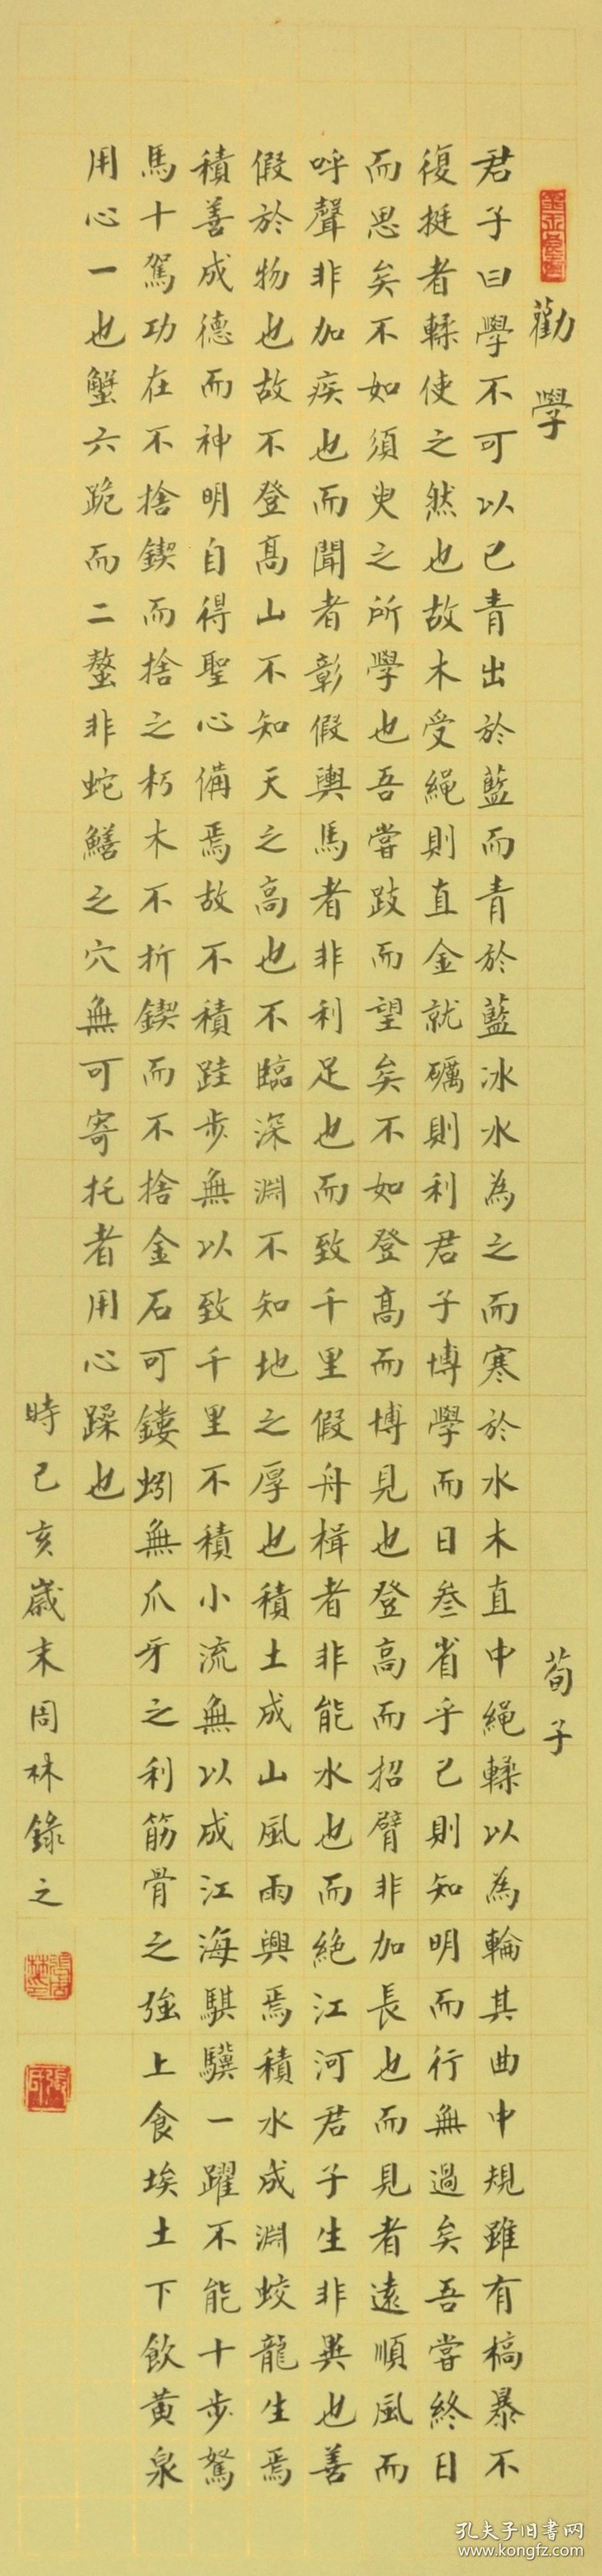 勸學 荀子
君子曰學不可以已青出於藍而青於藍冰水為之而寒於水木直中繩輮以為輪其曲中規雖有槁暴不
復挺者輮使之然也故木受繩則直金就礪則利君子博學而日叄省乎己則知明而行無過矣吾嘗終日
而思矣不如須臾之所學也吾嘗跂而望矣不如登高而博見也登高而招臂非加長也而見者遠順風而
呼聲非加疾也而聞者彰假輿馬者非利足也而致千里假舟楫者非能水也而絕江河君子生非異也善
假於物也故不登高山不知天之高也不臨深淵不知地之厚也積土成山風雨興焉積水成淵蛟龍生焉
積善成德而神明自得聖心備焉故不積跬步無以致千里不積小流無以成江海騏驥一躍不能十步駑
馬十駕功在不捨鍥而捨之朽木不折鍥而不捨金石可鏤蚓無爪牙之利筋骨之強上食埃土下飲黃泉
用心一也蟹六跪而二螯非蛇鱔之穴無可寄托者用心躁也
時己亥歲末周林錄之
孔夫子旧書网
www.kongfz.com